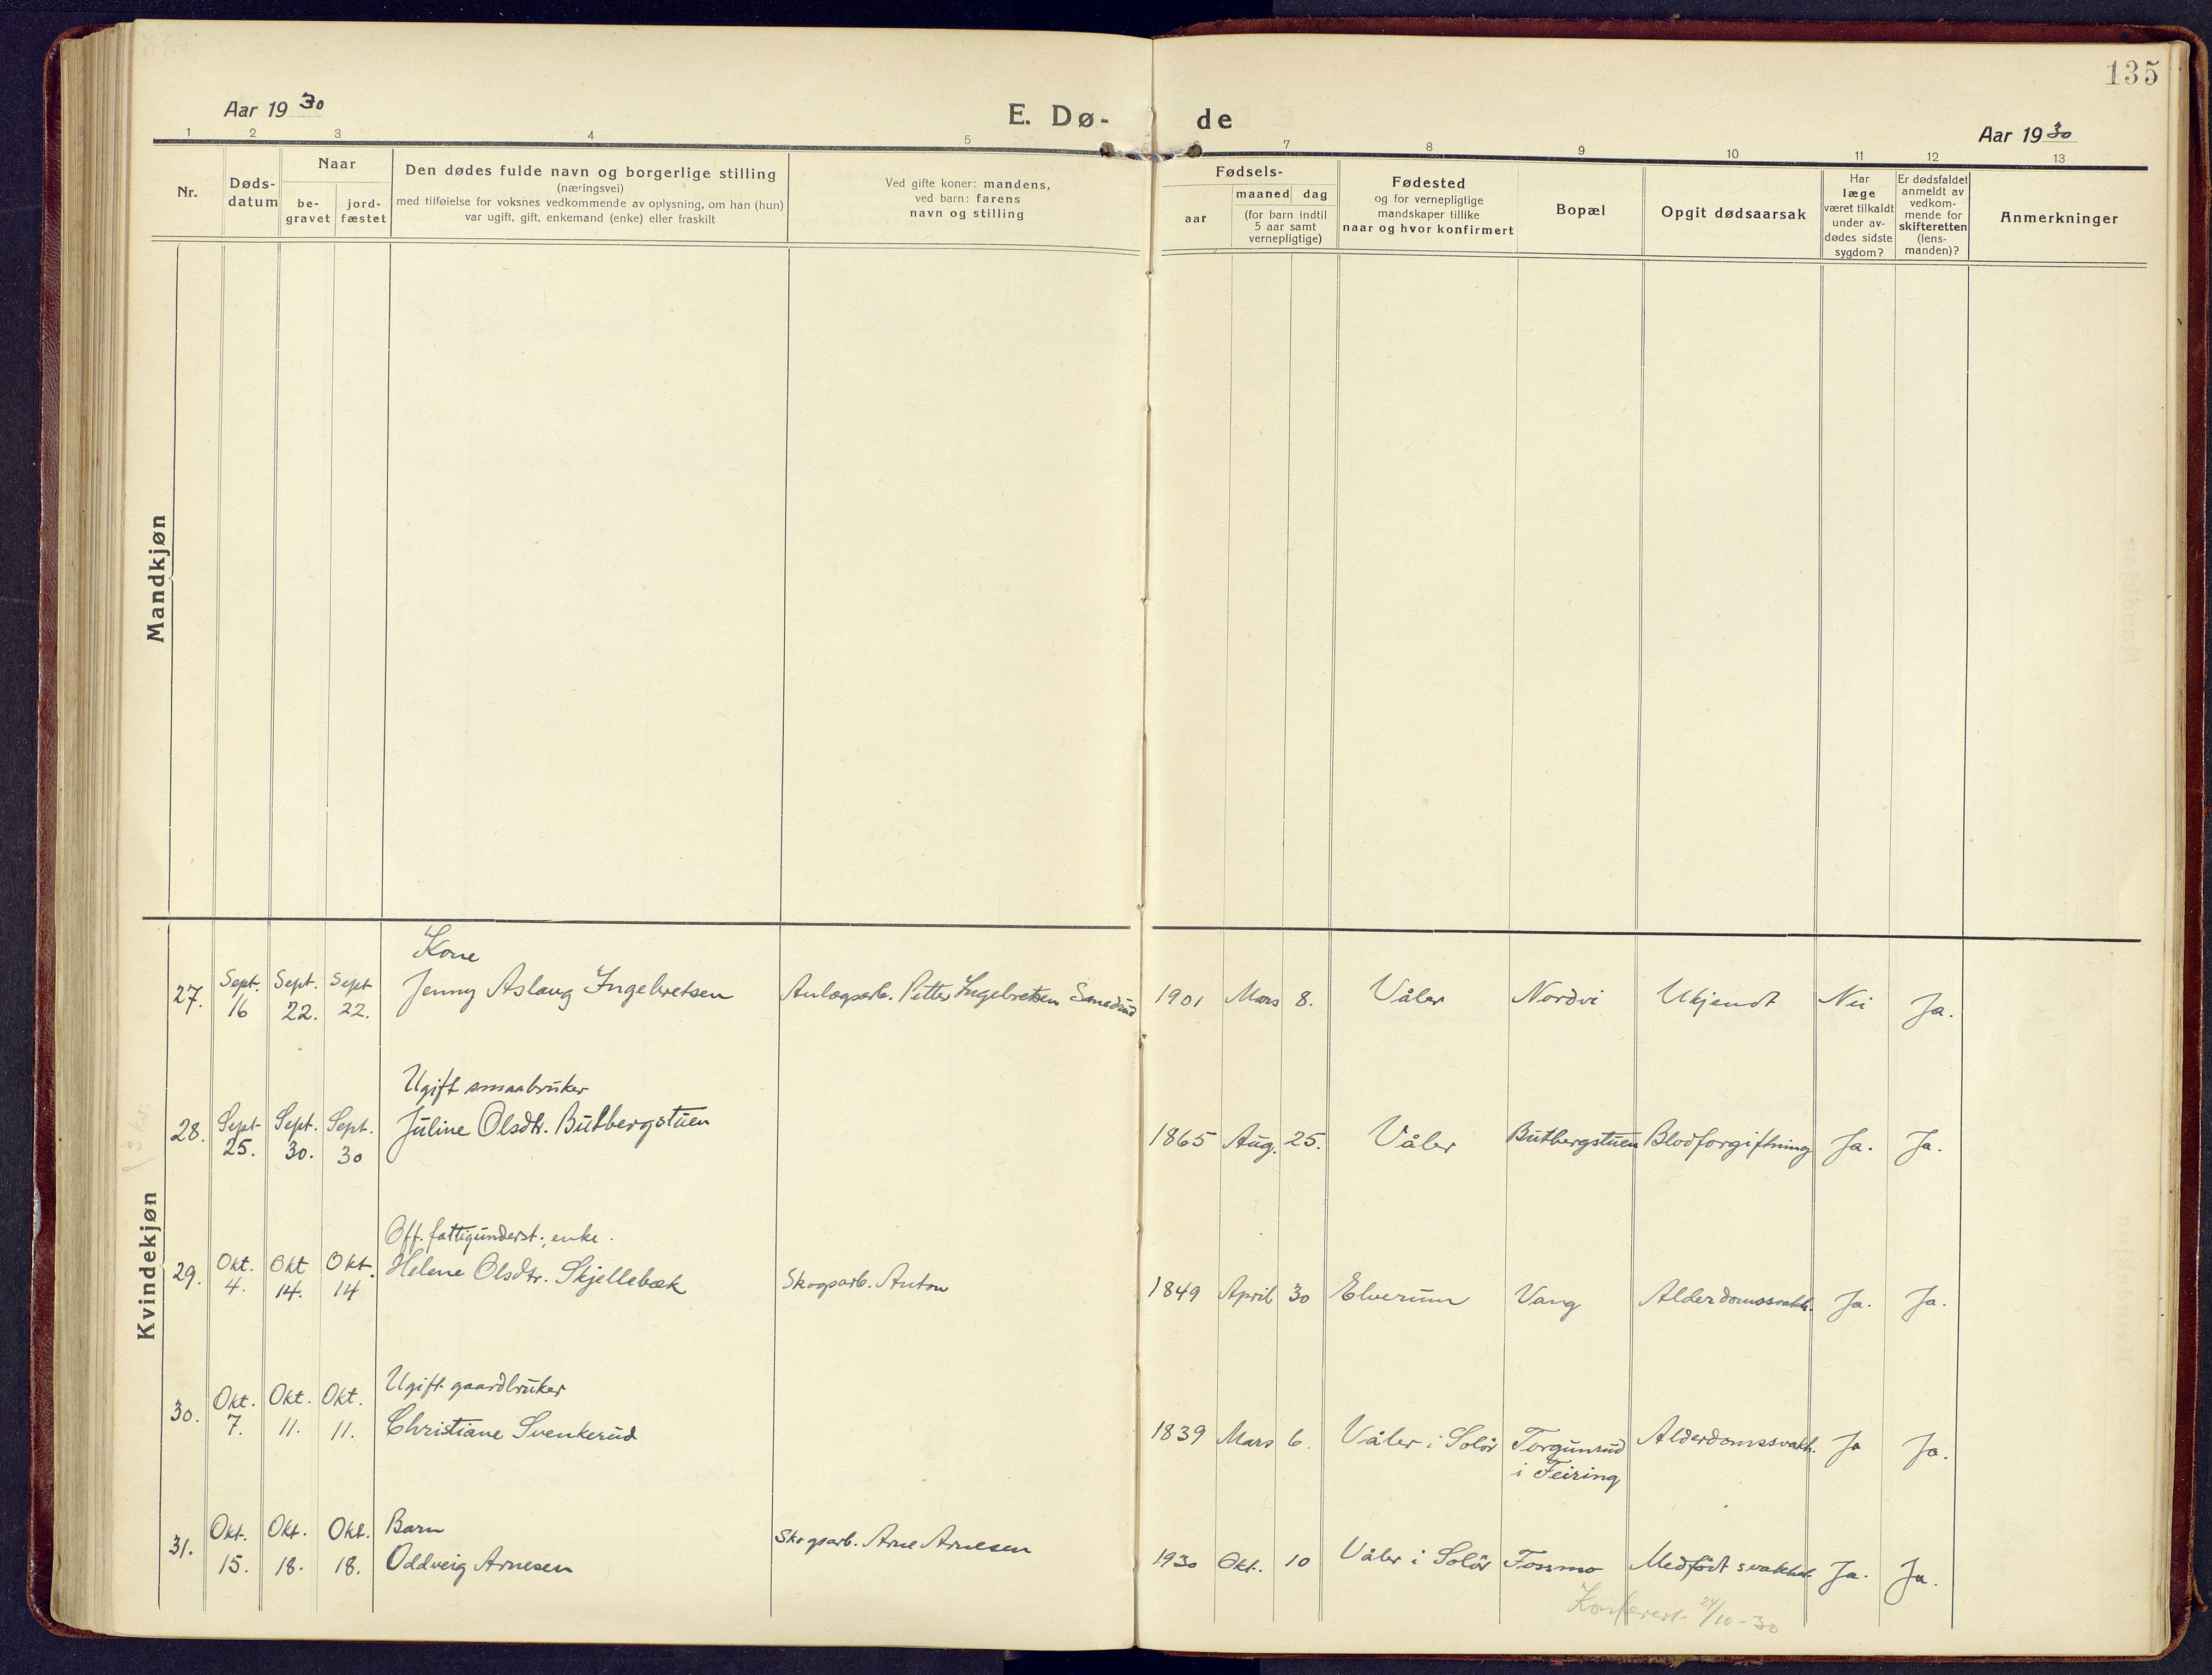 135
Aar 1930
E. Dø-
de
Aar 1930
1 2 3 4 5 6 7 8 9 10 11 12 13
Nr.
Døds-
datum
Naar
be-
gravet
jord-
fæstet
Den dødes fulde navn og borgerlige stilling
(næringsvei)
med tilføielse for voksnes vedkommende av oplysning, om han (hun)
var ugift, gift, enkemand (enke) eller fraskilt
Ved gifte koner: mandens,
ved barn: farens
navn og stilling
Fødsels-
aar
maaned dag
(for barn indtil
5 aar samt
vernepligtige)
Fødested
og for vernepligtige
mandskaper tillike
naar og hvor konfirmert
Bopæl
Opgit dødsaarsak
Har
læge
været tilkaldt
under av-
dødes sidste
sygdom?
Er dødsfaldet
anmeldt av
vedkom-
mende for
skifteretten
(lens-
manden)?
Anmerkninger
Mandkjøn
Kvindekjøn
Kone
27. Sept. 16 Sept. 22. Sept 22. Jenny Aslaug Ingebretsen Anlægsarb. Petter Ingebretsen 1901 Mars 8. Våler Nordvi Ukjendt Nei Ja.
Ugift smaabruker
28. Sept. 25. Sept. 30. Sept. 30 Juline Olsdtr. Butbergstuen 1865 Aug. 25. Våler Butbergstuen Blodforgiftning Ja. Ja.
Off. fattigunderst., enke.
29. Okt. 4. Okt 14. Okt. 14 Helene Olsdtr. Skjellebæk Skogsarb. Anton 1849 April 30 Elverum Vang Alderdomssvakh. Ja. Ja.
Ugift gaardbruker
30. Okt. 7. Okt. 11. Okt. 11. Christiane Svenkerud 1839 Mars 6. Våler i Solør Torgunrud i Feiring Alderdomssvakh. Ja Ja.
Barn
31. Okt. 15. Okt. 18. Okt. 18. Oddveig Arnesen Skogsarb. Arne Arnesen 1930 Okt. 10 Våler i Solør Fossmo Medfødt svakhet Ja. Ja.
Konferert 24/10-30